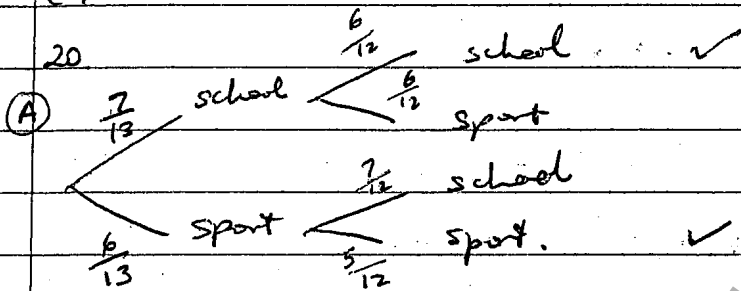 20
A
7/13 school 6/12 school ✓
6/12 sport
6/13 sport 7/12 school
5/12 sport. ✓